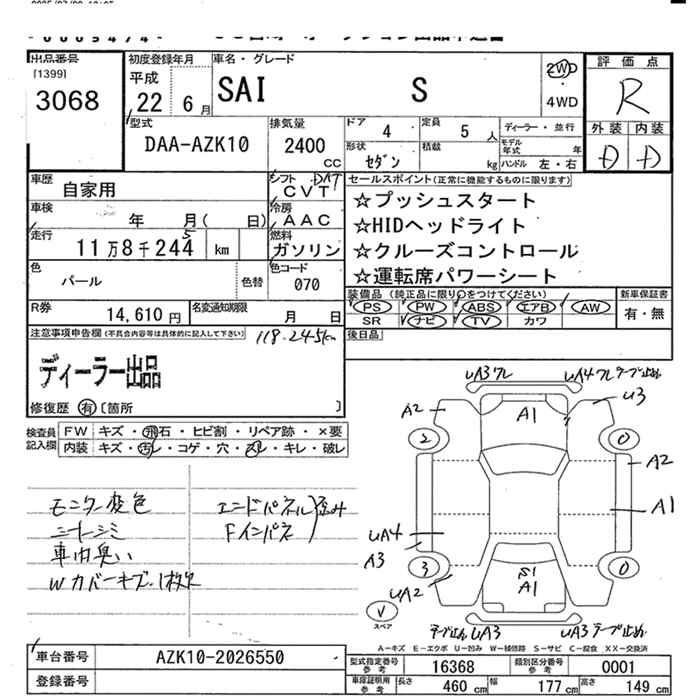 出品番号
[1399]
3068
初度登録年月
平成
22 6月
車名・グレード
SAI S
2WD
4WD
評価点
R
外装 内装
D D
型式
DAA-AZK10
排気量
2400
CC
ドア
4
定員
5 人
ディーラー・並行
形状
セダン
積載
kg
モデル年式 年
ハンドル 左・右
車歴
自家用
シフト DAT
CVT
車検
年 月( 日)
冷房
AAC
走行
11万8千244 5 km
燃料
ガソリン
色
パール
色替
色コード
070
R券
14,610円
名変通知期限
月 日
セールスポイント(正常に機能するものに限ります)
☆プッシュスタート
☆HIDヘッドライト
☆クルーズコントロール
☆運転席パワーシート
装備品(純正品に限り○をつけてください)
PS PW ABS エアB AW
SR ナビ TV カワ
新車保証書
有・無
後日品
注意事項申告欄(不具合内容等は具体的に記入して下さい)
118.245km
ディーラー出品
修復歴 有 [箇所 ]
検査員記入欄
FW キズ・飛石・ヒビ割・リペア跡・×要
内装 キズ・汚レ・コゲ・穴・スレ・キレ・破レ
モニター変色
シートシミ
車内臭い
Wカバーキズ・1枚欠
エンドパネル歪み
Fインパネ
UA3ワレ
UA4ワレテープ止め
A2
A1
U3
2
0
A2
A1
UA4
A3
3
0
UA2
S1
A1
V
スペア
テープ止めUA3
UA3テープ止め
A-キズ E-エクボ U-凹み W-補修跡 S-サビ C-腐食 XX-交換済
車台番号
AZK10-2026550
登録番号
型式指定番号 参考
16368
類別区分番号 参考
0001
車庫証明用 参考
長さ 460 cm
幅 177 cm
高さ 149 cm